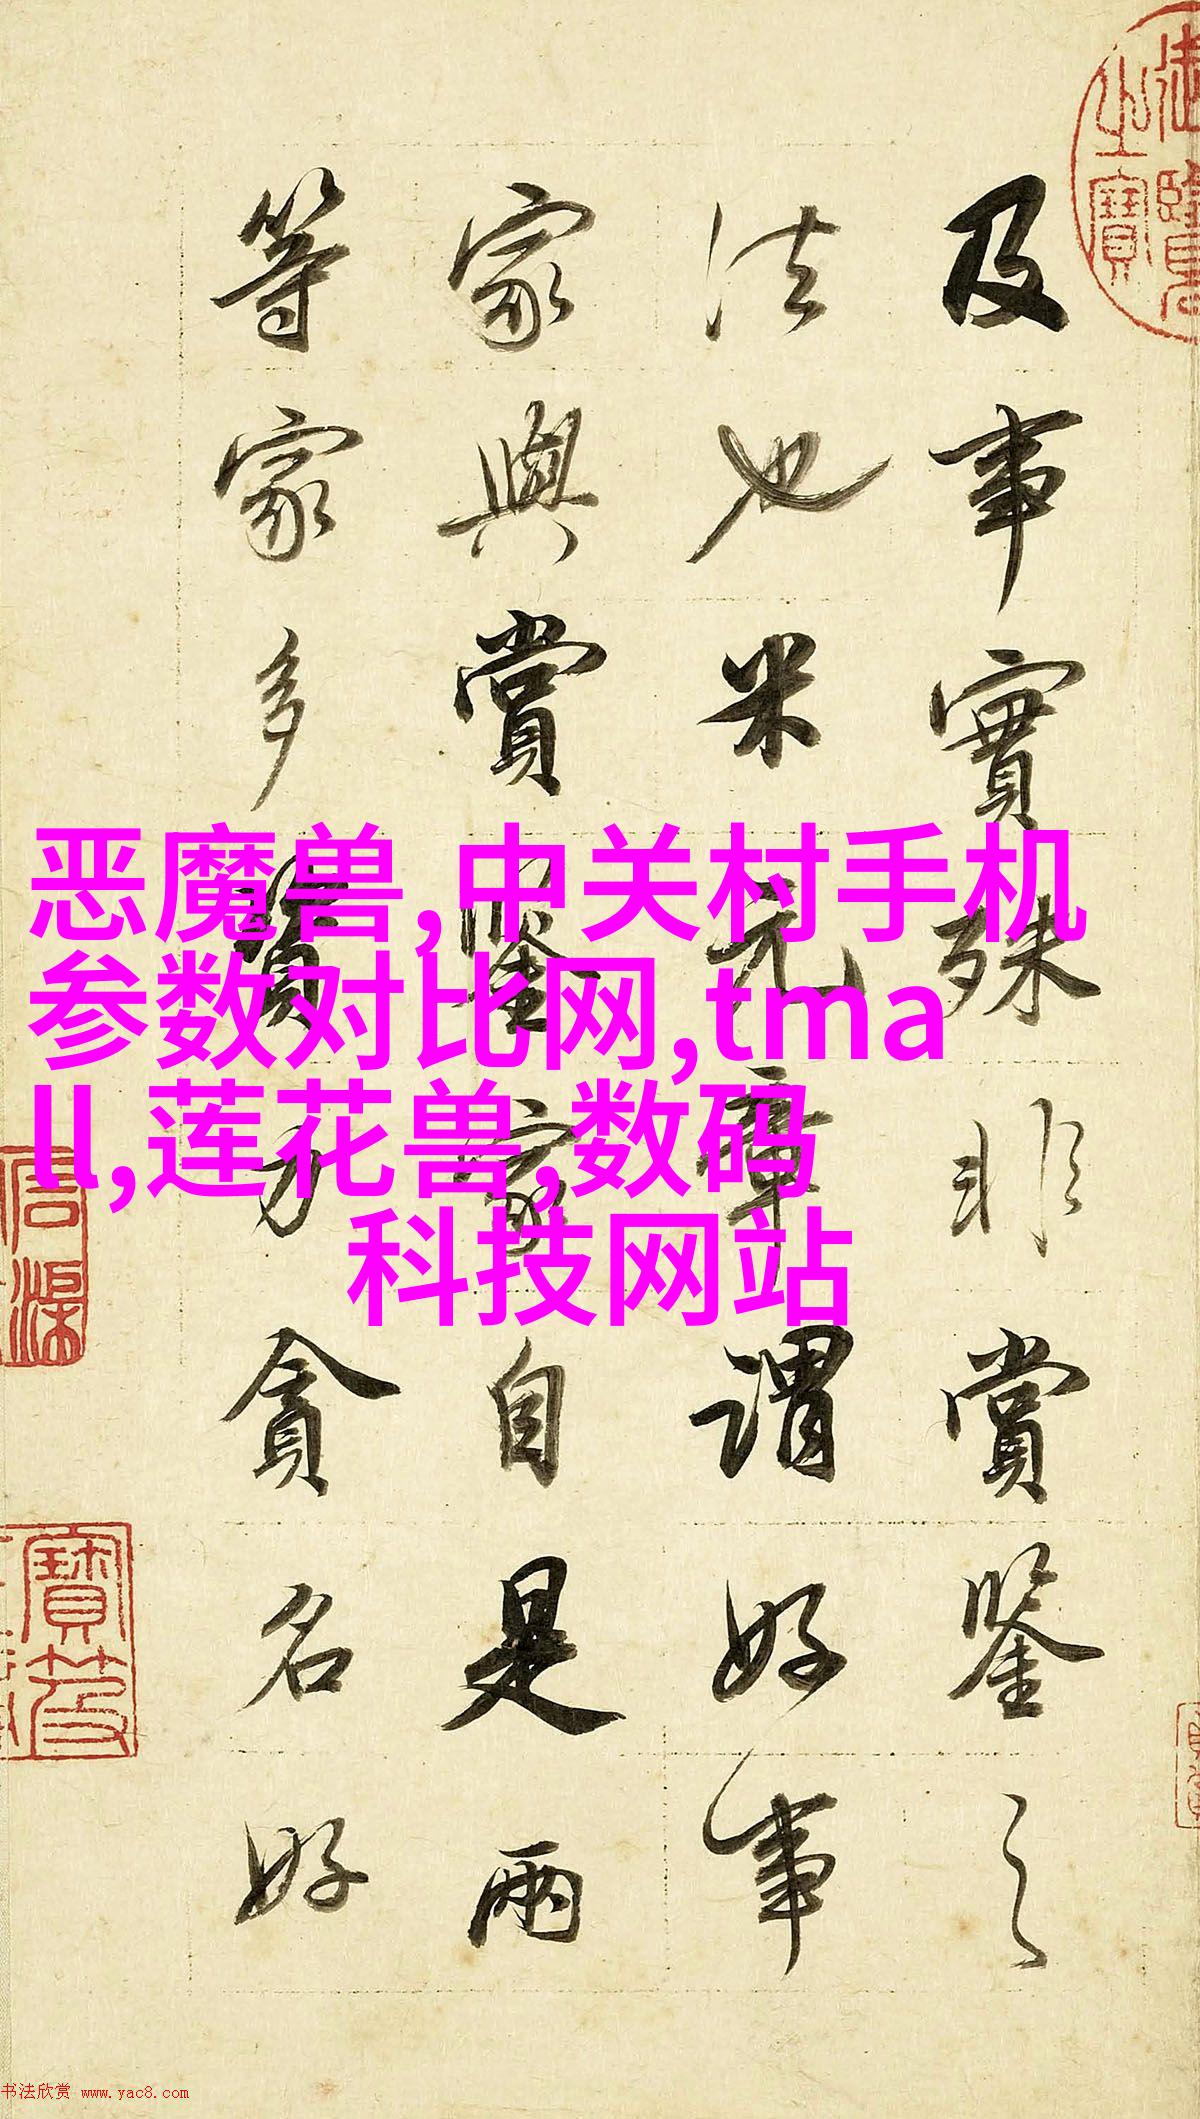 及事實殊非賞鑒之
法也米元章謂好事
家與賞鑒家自是兩
等家多資力貪名好
恶魔兽,中关村手机
参数对比网,tma
ll,莲花兽,数码
科技网站
之寶
书法欣赏 www.yac8.com